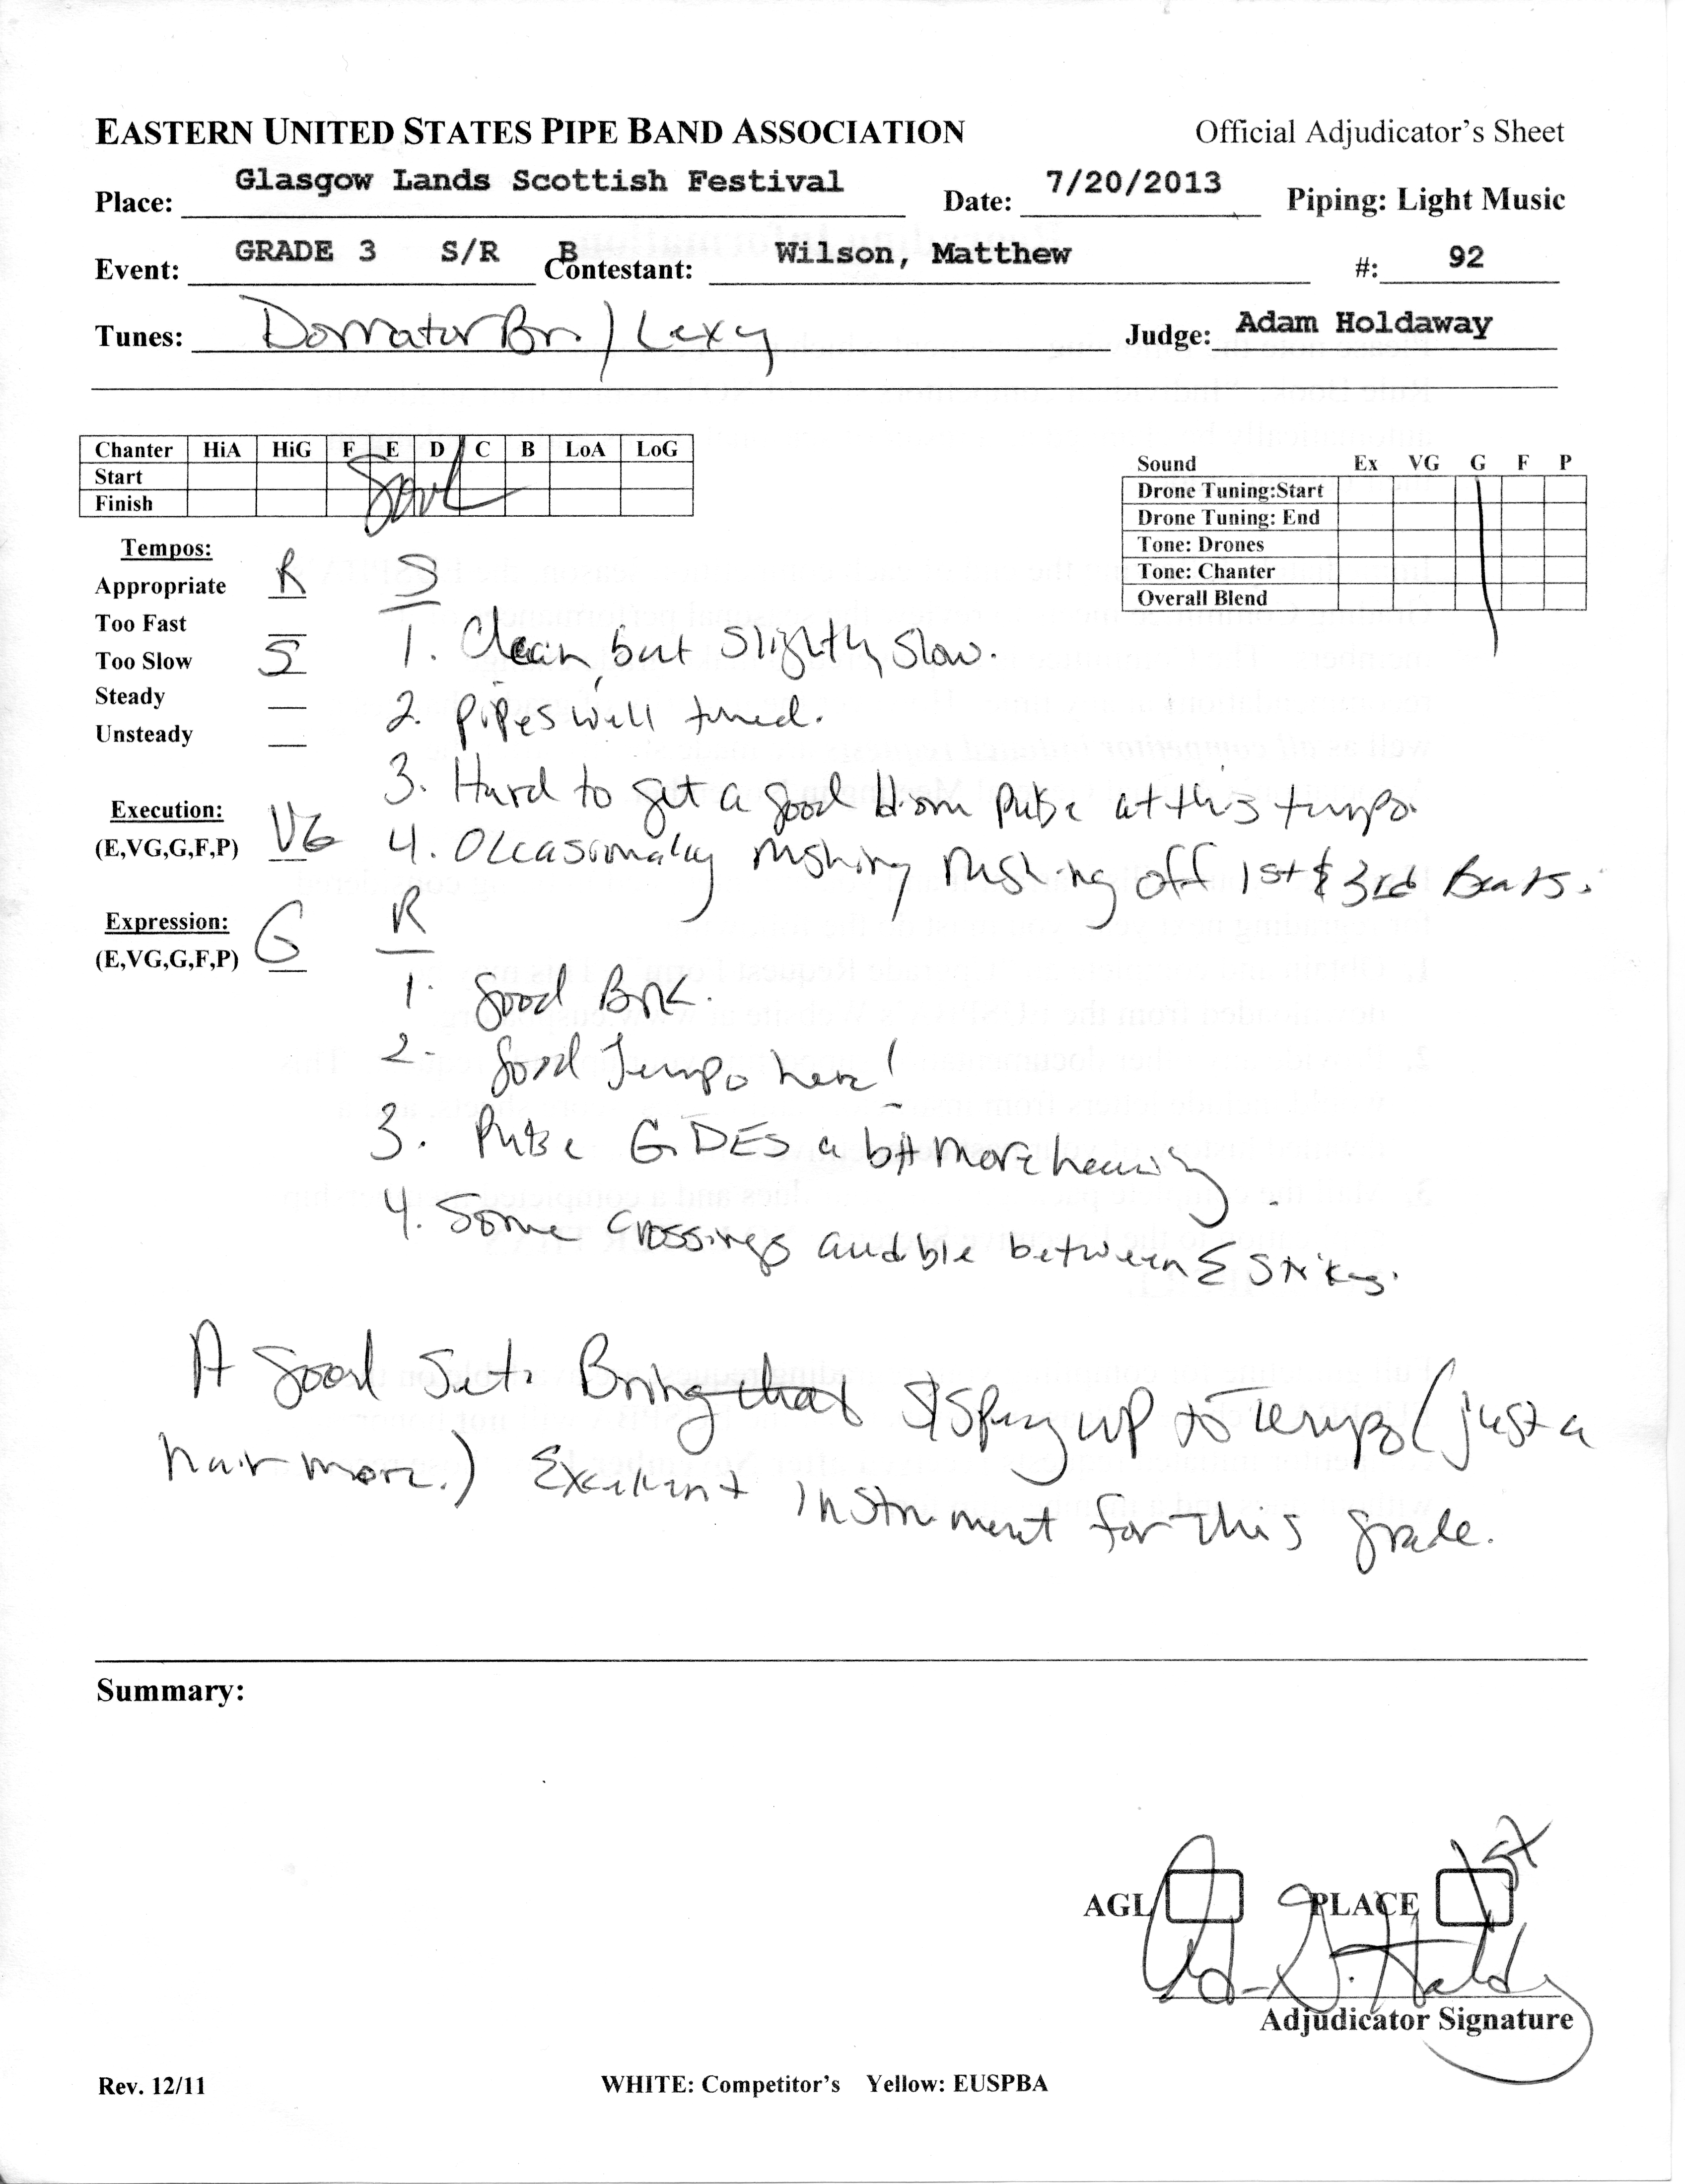 EASTERN UNITED STATES PIPE BAND ASSOCIATION Official Adjudicator's Sheet
Place: Glasgow Lands Scottish Festival Date: 7/20/2013 Piping: Light Music
Event: GRADE 3 S/R B Contestant: Wilson, Matthew #: 92
Tunes: Dornator Br. / Lexy Judge: Adam Holdaway
Chanter HiA HiG F E D C B LoA LoG
Start
Finish
Sound Ex VG G F P
Drone Tuning:Start
Drone Tuning: End
Tone: Drones
Tone: Chanter
Overall Blend
Tempos:
Appropriate R
Too Fast
Too Slow S
Steady
Unsteady
Execution:
(E,VG,G,F,P) VG
Expression:
(E,VG,G,F,P) G
S
1. Clean, but slightly slow.
2. Pipes well tuned.
3. Hard to get a good pulse at this tempo.
4. Occassionally rushing rushing off 1st & 3rd Beats.
R
1. Good Brk.
2. Good Tempo here!
3. Pulse GDES a bit more heavily
4. Some crossings audible between E strikes.
A good set. Bring that Spey up to Tempo (just a
hair more.) Excellent instrument for this grade.
Summary:
AGL PLACE 1st
Adjudicator Signature
Rev. 12/11 WHITE: Competitor's Yellow: EUSPBA